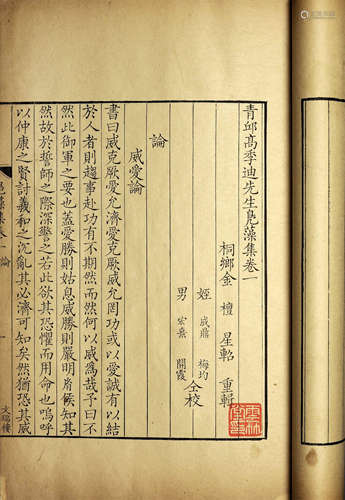 青邱高季迪先生鳧藻集卷一
桐鄉金 檀 星軺 重輯
姪 成鼎 梅均
男 宏熹 開霞 仝校
論
威愛論
書曰威克厥愛允濟愛克厥威允罔功或以愛誠有以結
於人者則趨事赴功有不期然而然何以威爲哉予曰不
然此御軍之要也蓋愛勝則姑息威勝則嚴明胤候知其
然故於誓師之際深警之若此欲其恐懼而用命也嗚呼
以仲康之賢討羲和之沉亂其必濟可知矣然猶恐其威
鳧藻集卷一 論
一
文瑞樓